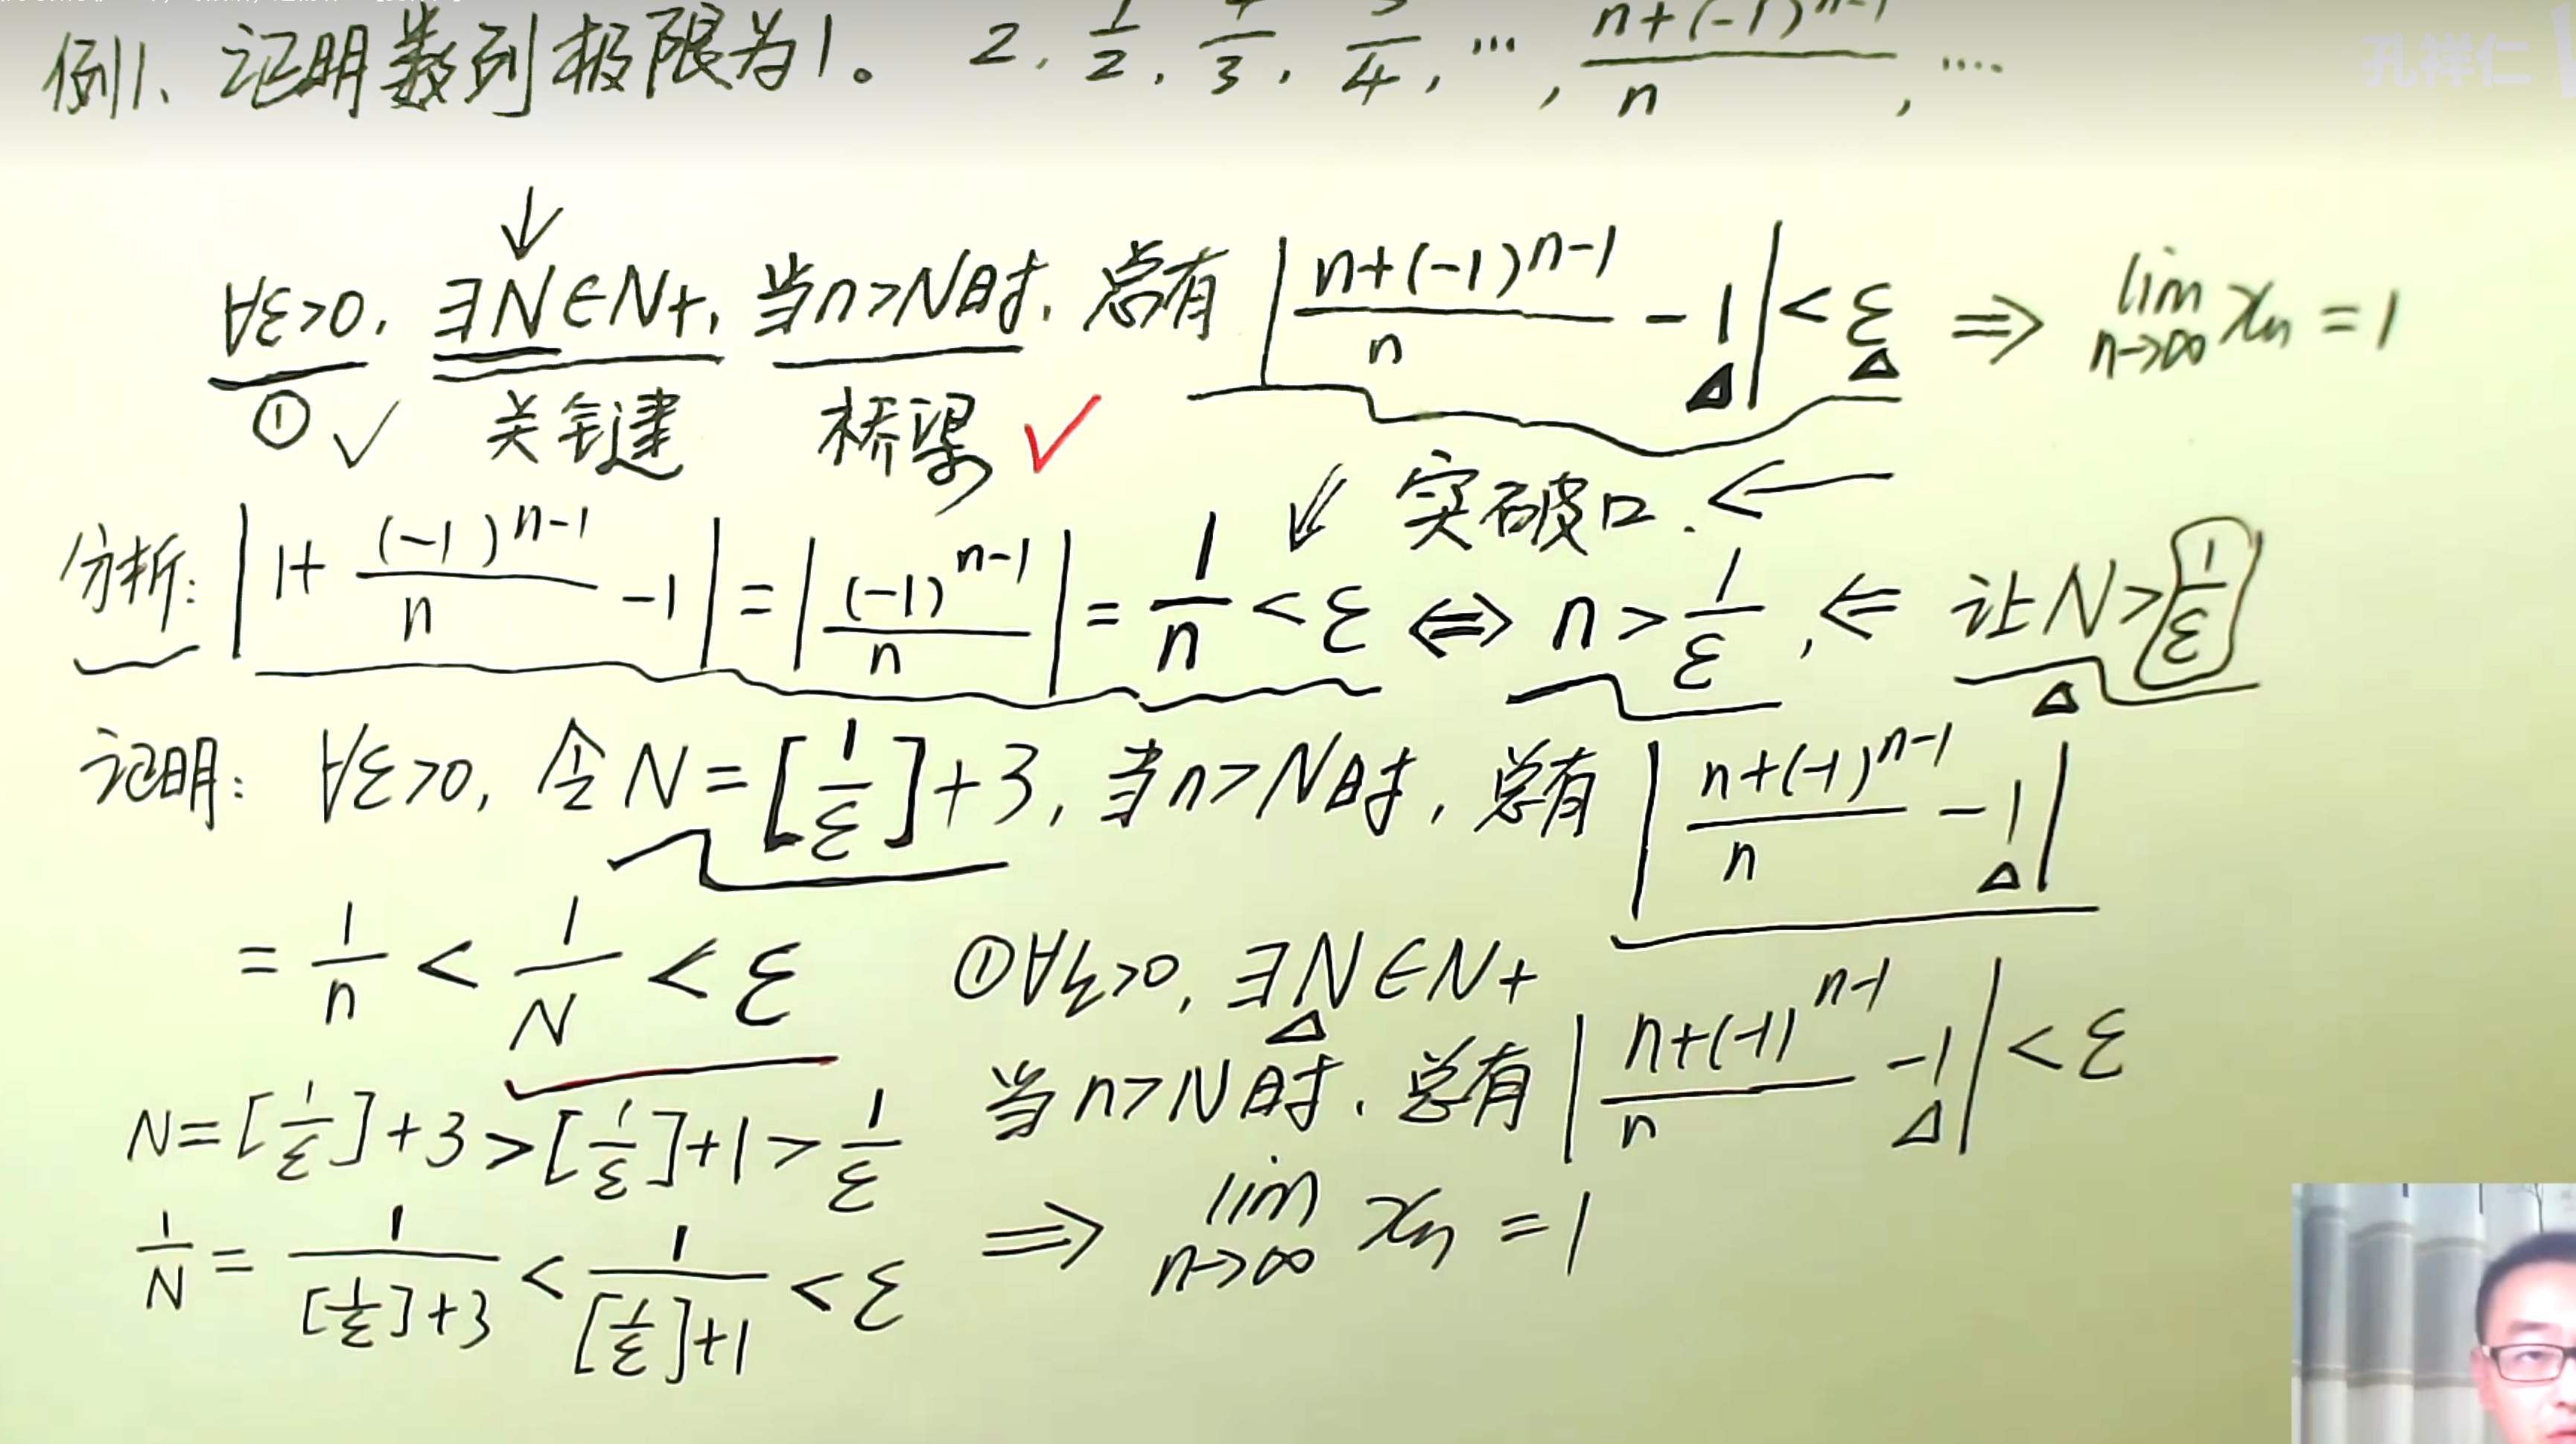 例1、证明数列极限为1。 2, 1/2, 4/3, 3/4, …, (n+(-1)^(n-1))/n, ….
孔祥仁
↓
∀ε>0, ∃N∈N+, 当n>N时, 总有 |(n+(-1)^(n-1))/n - 1| < ε ⇒ lim n→∞ xn = 1
① ✓ 关键 桥梁 ✓
突破口. ←
分析: |1+(-1)^(n-1)/n -1| = |(-1)^(n-1)/n| = 1/n < ε ⇔ n > 1/ε, ⇐ 让N > 1/ε
证明: ∀ε>0, 令N = [1/ε]+3, 当n>N时, 总有 |(n+(-1)^(n-1))/n - 1|
= 1/n < 1/N < ε
①∀ε>0, ∃N∈N+
当n>N时, 总有 |(n+(-1)^(n-1))/n - 1| < ε
N = [1/ε]+3 > [1/ε]+1 > 1/ε
1/N = 1/([1/ε]+3) < 1/([1/ε]+1) < ε
⇒ lim n→∞ xn = 1